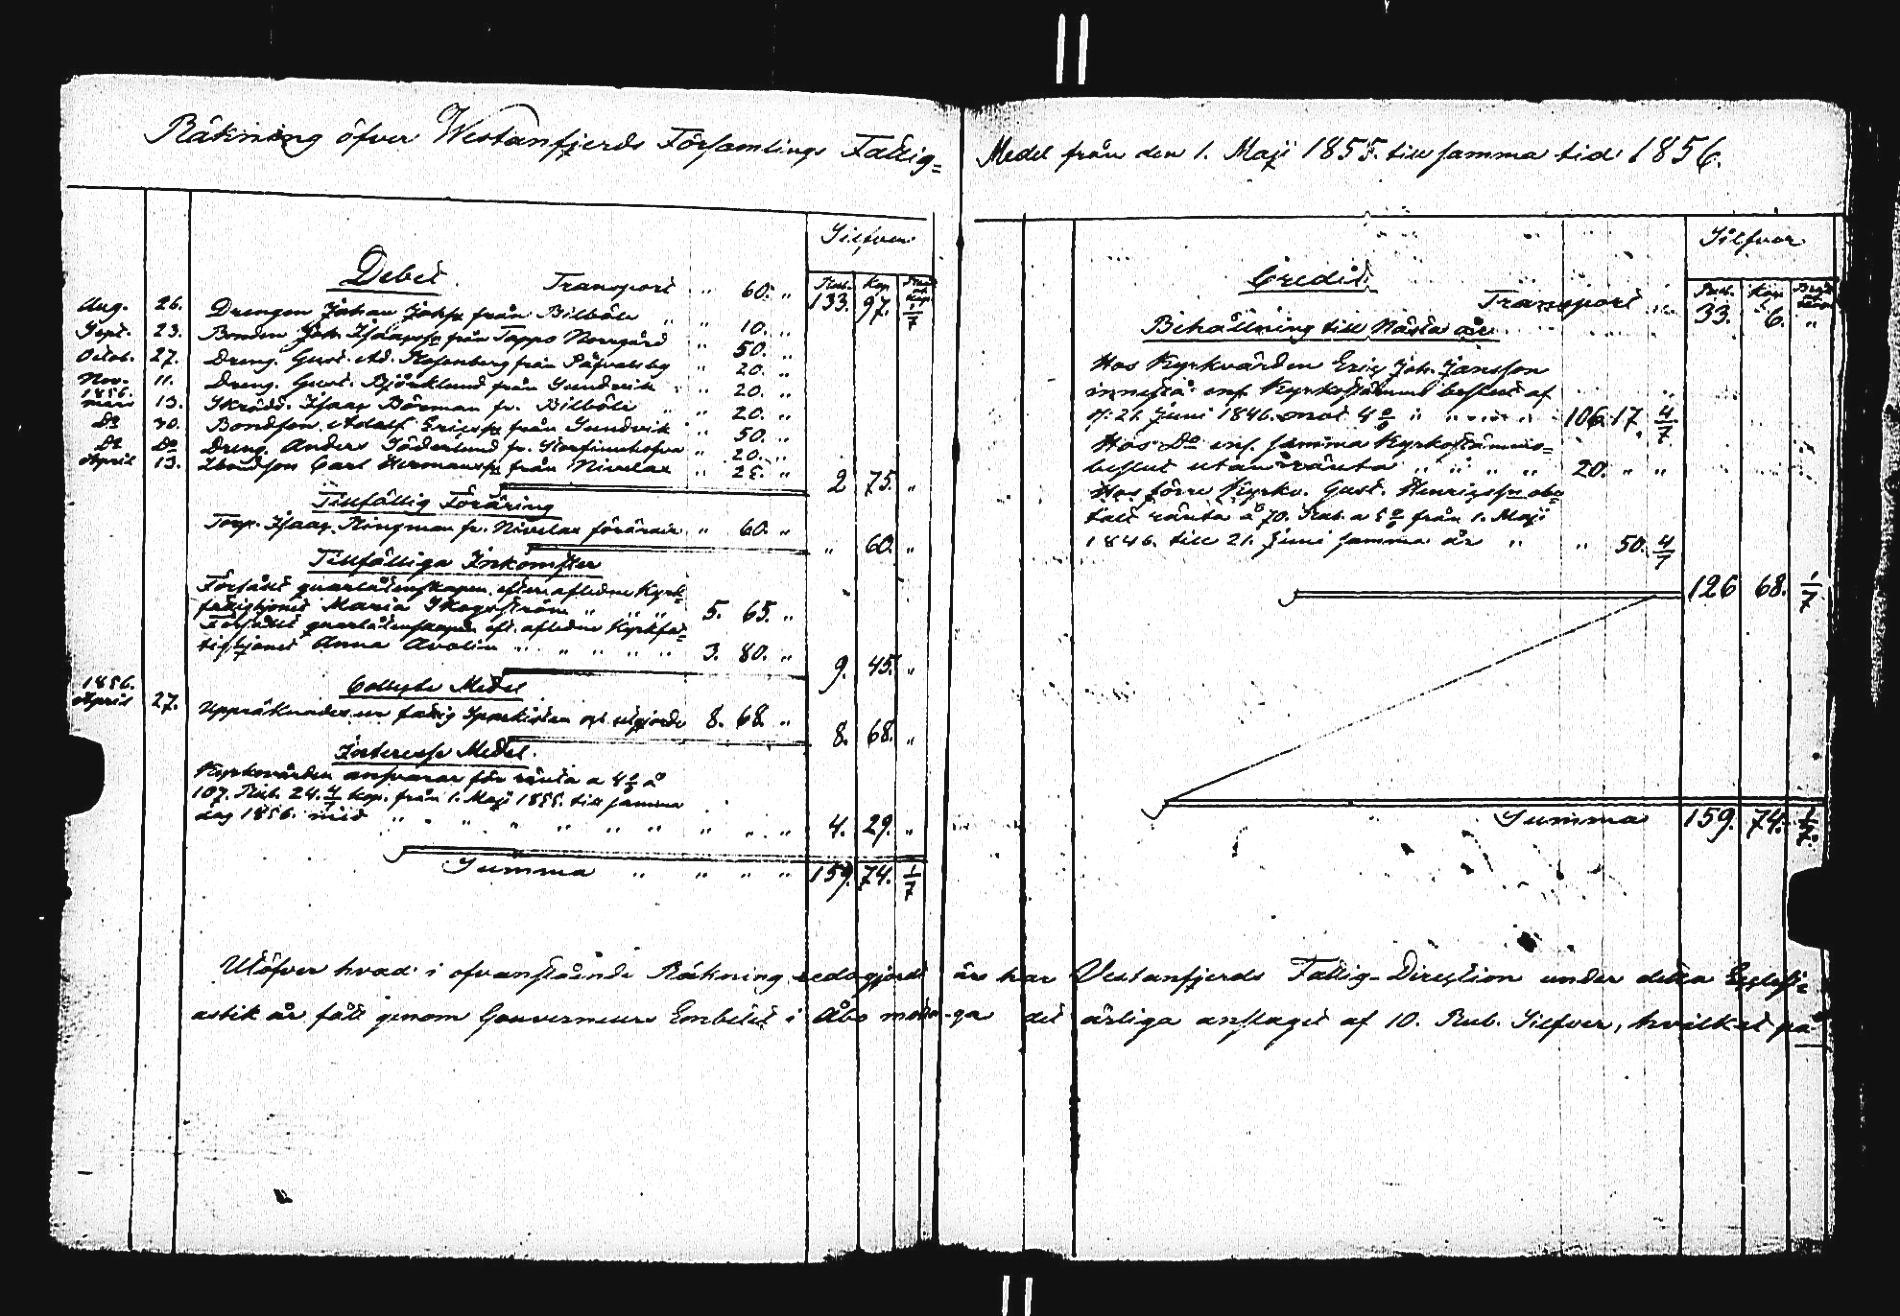 Räkning öfver Westanfjerds Församlings Fattig=
Silfver
Debet
Transport " 60. "
Rub. Kop. 
133. 97. 1/7
Aug. 26. Drengen Johan Johss. från Bilböle " " 10. "
Sept. 23. Bonden Joh. Isaacss. från Tappo Norrgård " 50. "
Octob. 27. Dreng. Gust. Ad. Rosenberg från Påfvalsby " 20. "
Nov. 11. Dreng. Gust. Björklund från Sundvik " 20. "
1856.
mars 13. Skrädd. Isaac Börman fr. Bilböle " " 20. "
Do 30. Bondson Adolf Ericss. från Sundvik " 50. "
Do Do Dreng. Anders Söderlund fr. " 20. "
April 13. Carl Hermanss. från Nivelax " 25. "
2 75. "
Tillfällig Föräring
Torp. Isaac Klingman fr. Nivelax förärar " 60. "
" 60. "
Tillfälliga Inkomster
Försålt qvarlåtenskapen efter aflidne Kyrk=
fattighjonet Maria Skogström " " " 5. 65. "
Försåldt qvarlåtenskapen eft. aflidne Kyrkfat=
tighjonet Anna Avolin " " " " " 3. 80. "
9. 45. "
Collecte Medel
1856.
April 27. Uppräknades ur fattig Sparkistan och utgjorde 8. 68. "
8. 68. "
Interesse Medel.
Kyrkovärden ansvarar för ränta a 4 % å
107. Rub. 24. 4/7 kop. från 1. Maji 1855. till samma
dag 1856. med " " " " " " " " " " 4. 29. "
Summa " " " " 159. 74. 1/7
Utöfver hvad i ofvanstående Räkning redogjordt
astik år fått genom Gouverneurs Embetet i Åbo motta-
Medel från den 1. Maji 1855. till samma tid 1856.
Silfver
Credit.
Transport
Rub. Kop.
33. 6. "
Behållning till Nästa år
Hos Kyrkvärden Eric Joh. Jansson
innestå enl. Kyrkostämmo beslut af
d. 21. Juni 1846. mot 4 % " " " " 106. 17. 4/7
Hos Do enl. samma Kyrkostämmo=
beslut utan ränta " " " " 20. " "
Hos förre Kyrkv. Gust. Henricss. obe=
tald ränta å 70. Rub. a 5 % från 1. Maji
1846. till 21. Juni samma år " " 50. 4/7
126 68. 1/7
Summa 159. 74. 1/7
är har Vestanfjerds Fattig-Direction under detta Ecclesi=
ga det årliga anslaget af 10. Rub. Silfver, hvilket på